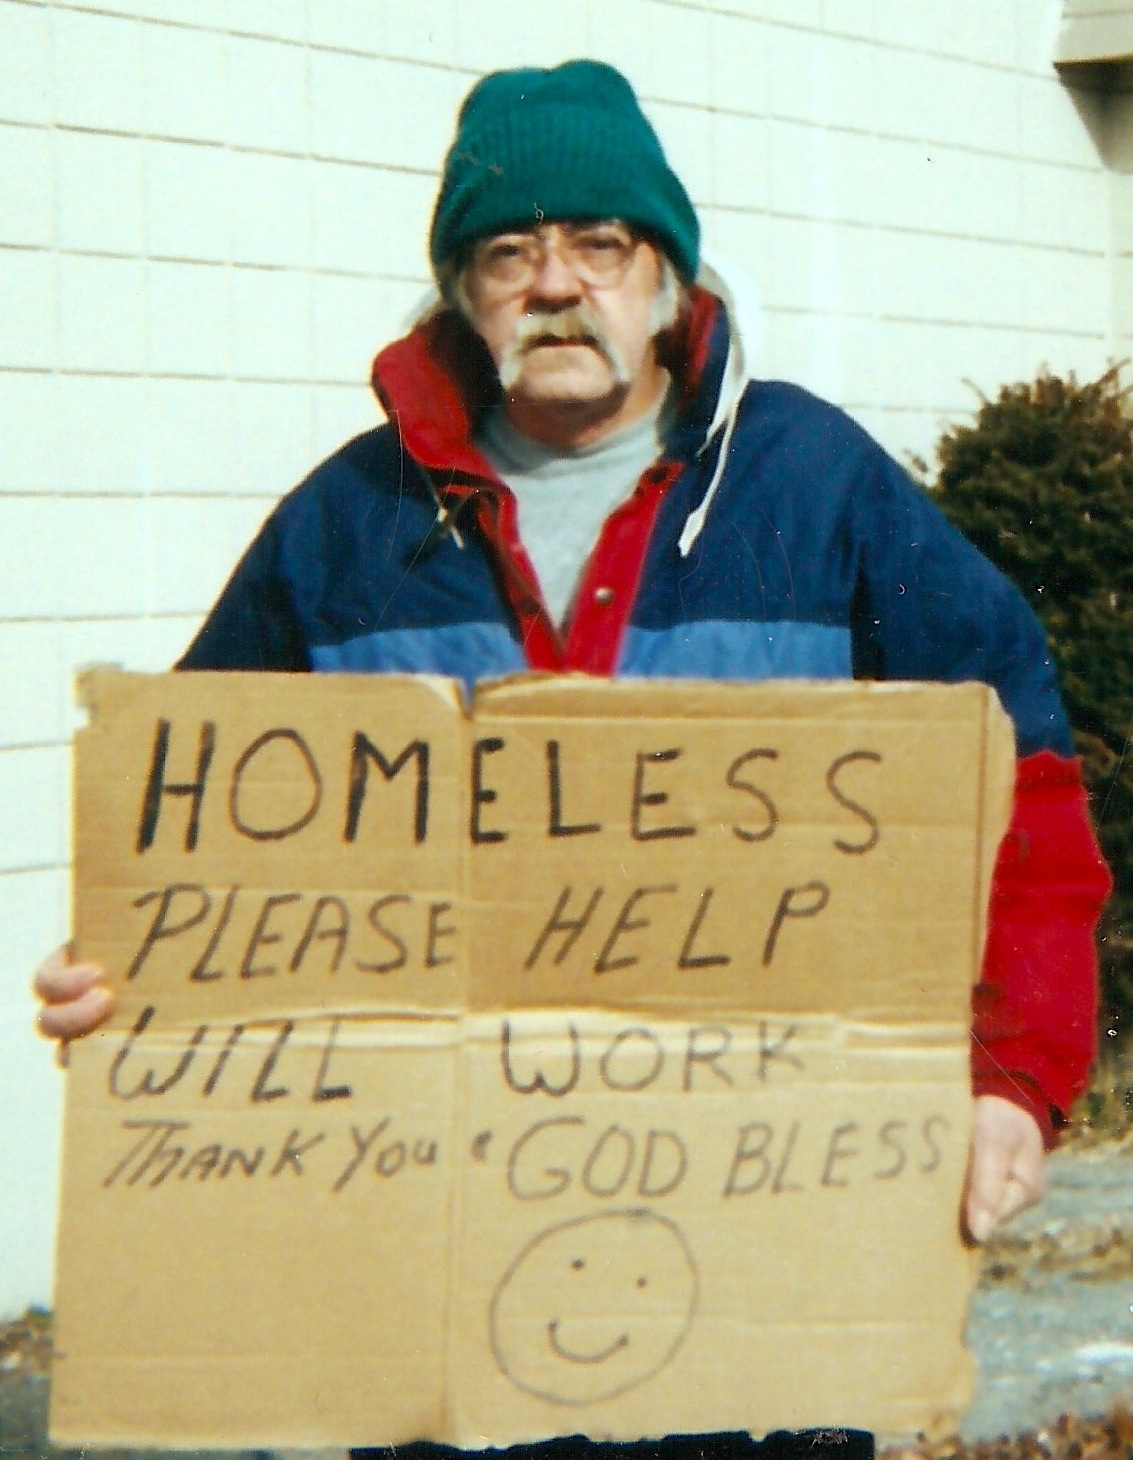 HOMELESS
PLEASE HELP
WILL WORK
THANK YOU & GOD BLESS